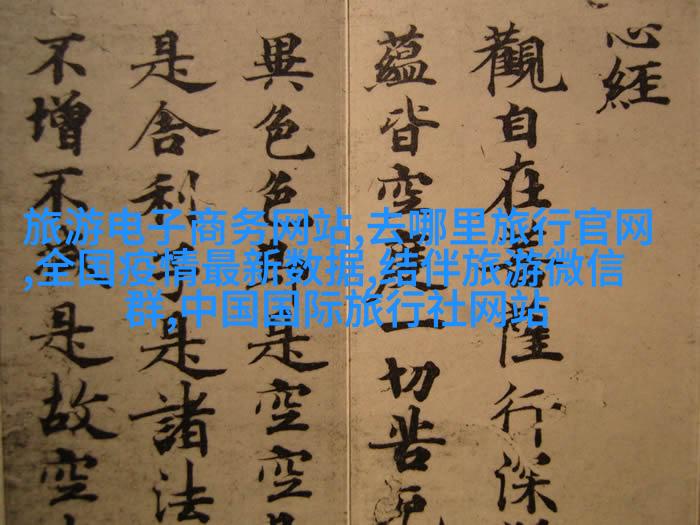 心經
觀自在菩薩行深
蘊皆空度一切苦厄
異色色即是空空
是舍利子是諸法
不增不減是故空
旅游电子商务网站,去哪里旅行官网
,全国疫情最新数据,结伴旅游微信
群,中国国际旅行社网站